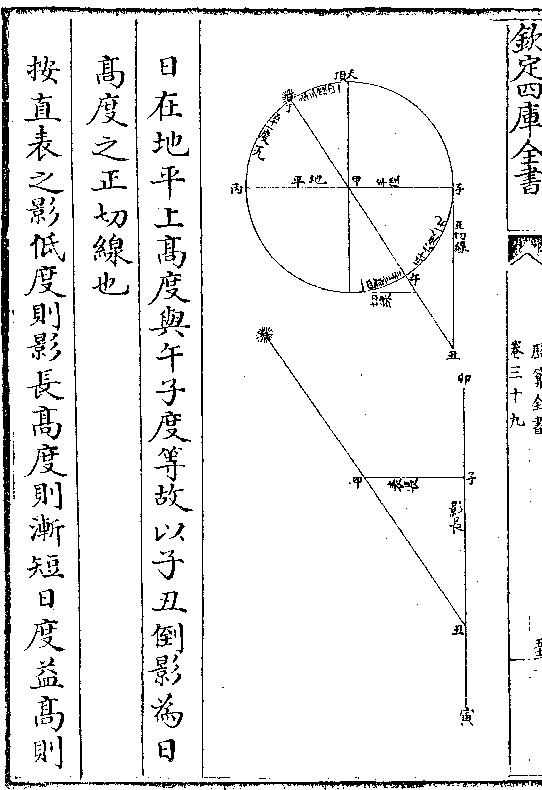 欽定四庫全書
卷三十九
天頂
丙
地平
甲
子
正切線
午
丑
卯
甲
子
影長
丑
寅
日在地平上髙度與午子度等故以子丑倒影為日
髙度之正切線也
按直表之影低度則影長髙度則漸短日度益髙則